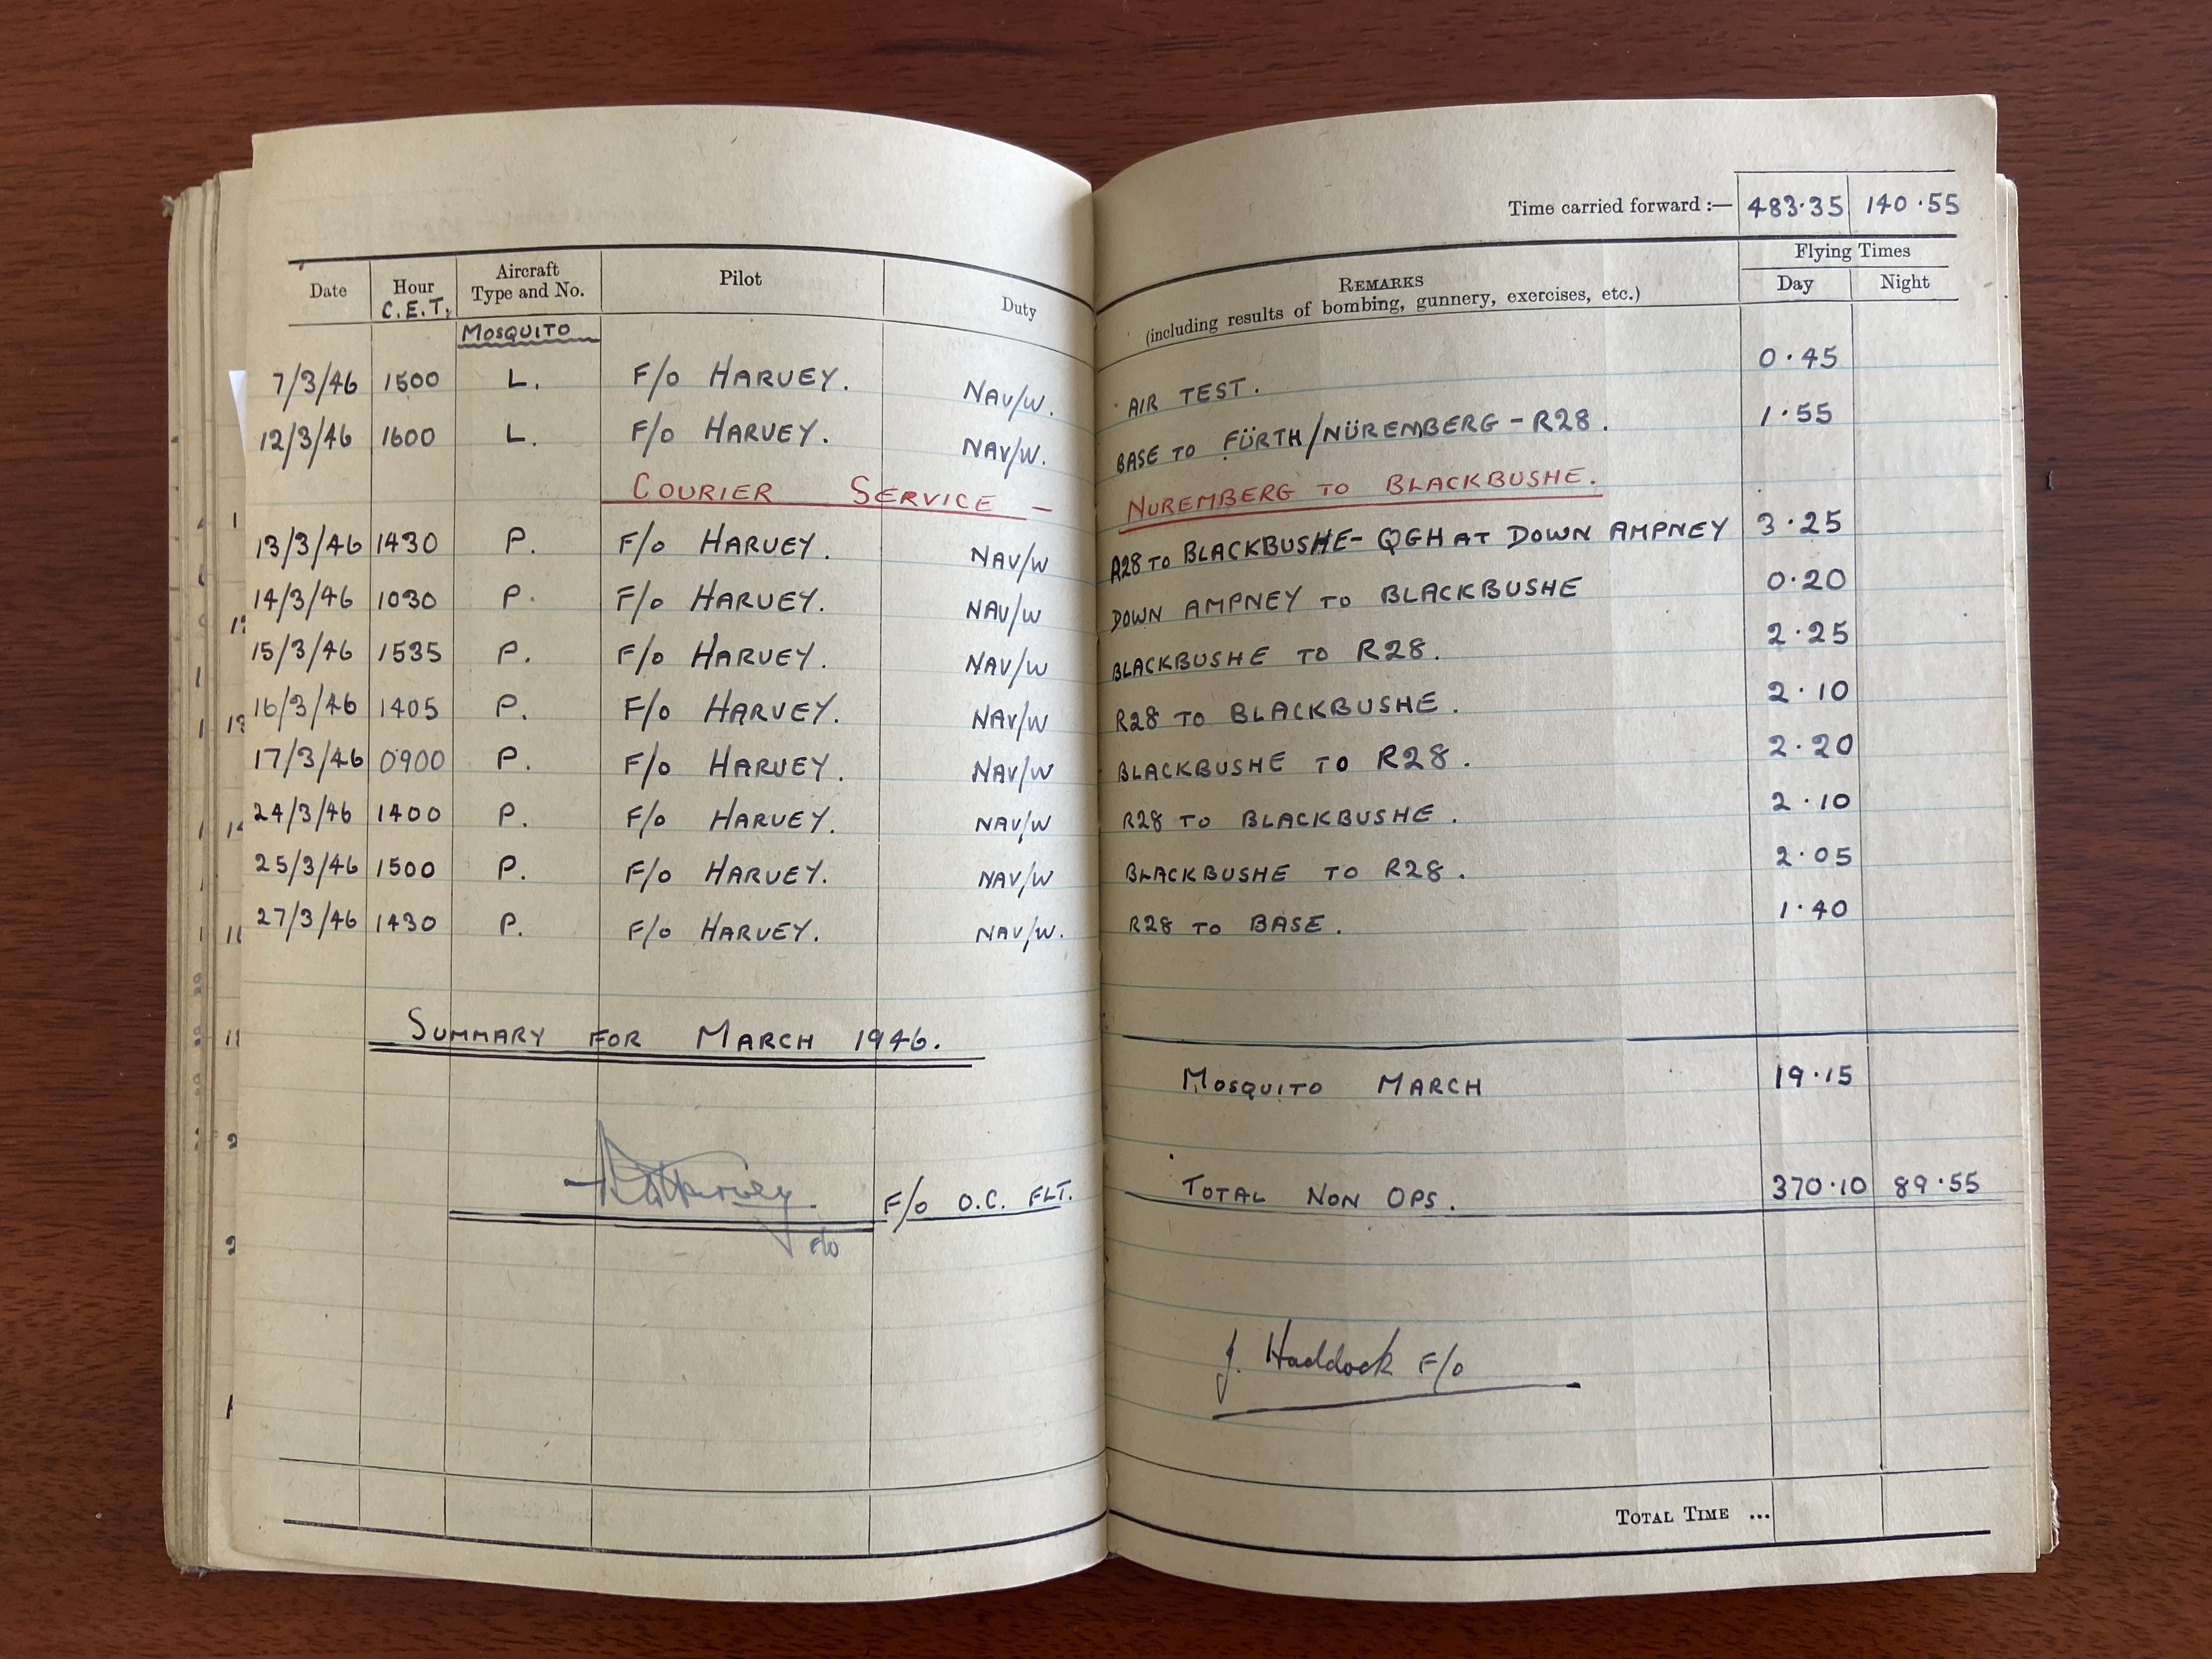 Time carried forward :— 483·35 140·55
Date Hour C.E.T. Aircraft Type and No. Pilot Duty REMARKS (including results of bombing, gunnery, exercises, etc.) Flying Times Day Night
MOSQUITO
7/3/46 1500 L. F/O HARVEY. NAV/W. AIR TEST. 0·45
12/3/46 1600 L. F/O HARVEY. NAV/W. BASE TO FÜRTH/NÜREMBERG - R28. 1·55
COURIER SERVICE - NUREMBERG TO BLACKBUSHE.
13/3/46 1430 P. F/O HARVEY. NAV/W R28 TO BLACKBUSHE- QGH AT DOWN AMPNEY 3·25
14/3/46 1030 P. F/O HARVEY. NAV/W DOWN AMPNEY TO BLACKBUSHE 0·20
15/3/46 1535 P. F/O HARVEY. NAV/W BLACKBUSHE TO R28. 2·25
16/3/46 1405 P. F/O HARVEY. NAV/W R28 TO BLACKBUSHE. 2·10
17/3/46 0900 P. F/O HARVEY. NAV/W BLACKBUSHE TO R28. 2·20
24/3/46 1400 P. F/O HARVEY. NAV/W R28 TO BLACKBUSHE. 2·10
25/3/46 1500 P. F/O HARVEY. NAV/W BLACKBUSHE TO R28. 2·05
27/3/46 1430 P. F/O HARVEY. NAV/W. R28 TO BASE. 1·40
SUMMARY FOR MARCH 1946.
MOSQUITO MARCH 19·15
Harvey F/O F/O O.C. FLT.
TOTAL NON OPS. 370·10 89·55
J. Haddock F/O
TOTAL TIME ...